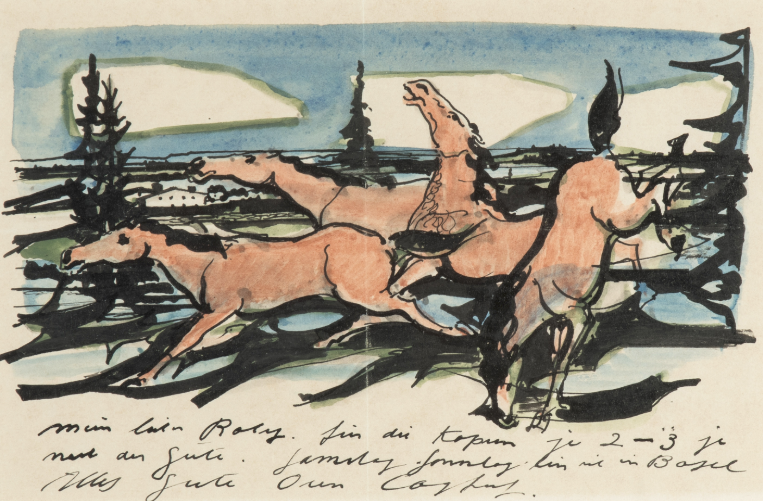 mein lieber Roby. für die Kopien je 2-3 je
nach der Güte. Samstag Sonntag bin ich in Basel
Alles Gute Dein Coghuf.